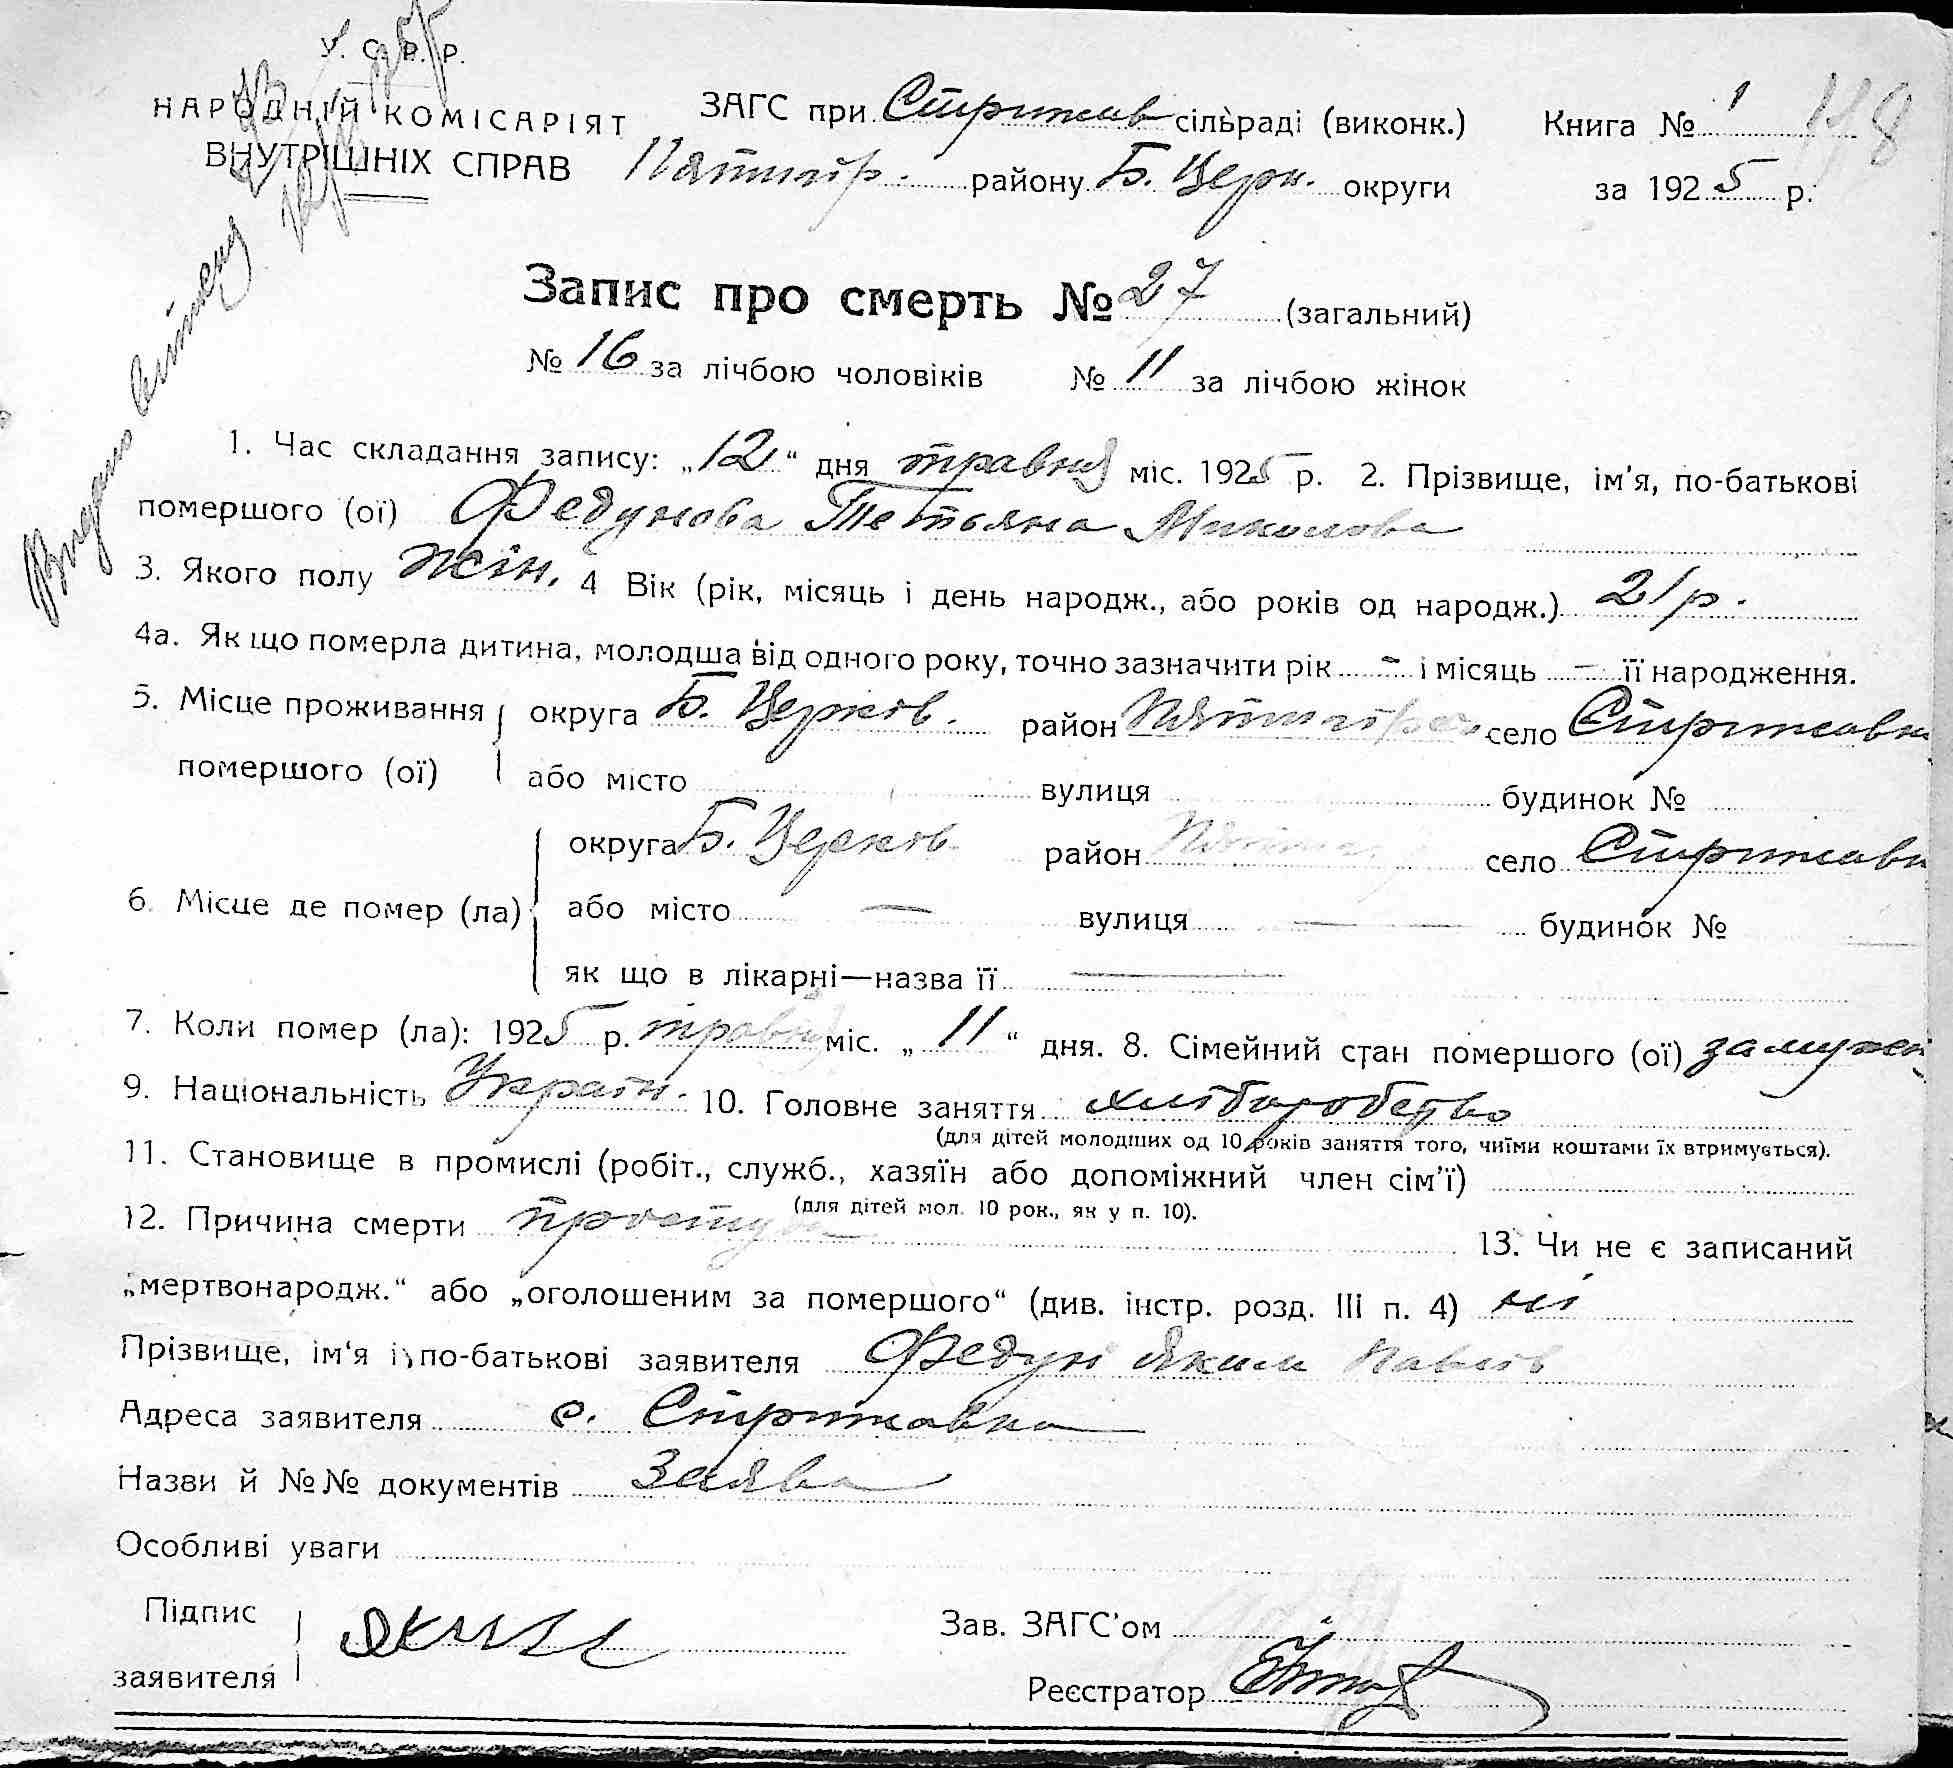 У. С. Р. Р.
НАРОДНІЙ КОМІСАРІЯТ
ВНУТРІШНІХ СПРАВ
ЗАГС при Стрижав сільраді (виконк.)
Пятигір. району Б. Церк. округи
Книга № 1
за 1925 р.
118
Видано витяг
Запис про смерть № 27 (загальний)
№ 16 за лічбою чоловіків № 11 за лічбою жінок
1. Час складання запису: „12“ дня травня міс. 1925 р. 2. Прізвище, ім'я, по-батькові
помершого (ої) Федунова Тетьяна Миколова
3. Якого полу жін. 4 Вік (рік, місяць і день народж., або років од народж.) 21 р.
4а. Як що померла дитина, молодша від одного року, точно зазначити рік - і місяць - її народження.
5. Місце проживання округа Б. Церків. район Пятигірс. село Стрижавк
помершого (ої) або місто вулиця будинок №
округа Б. Церків район Пятиг село Стрижавк
6. Місце де помер (ла) або місто — вулиця — будинок №
як що в лікарні—назва її —
7. Коли помер (ла): 1925 р. травня міс. „11“ дня. 8. Сімейний стан помершого (ої) замужем
9. Національність Україн. 10. Головне заняття хліборобство
(для дітей молодших од 10 років заняття того, чиїми коштами їх втримується).
11. Становище в промислі (робіт., служб., хазяїн або допоміжний член сім'ї)
(для дітей мол. 10 рок., як у п. 10).
12. Причина смерти простуда 13. Чи не є записаний
„мертвонародж.“ або „оголошеним за помершого“ (див. інстр. розд. III п. 4) ні
Прізвище, ім'я і по-батькові заявителя Федун Яким Павлів
Адреса заявителя с. Стрижавка
Назви й №№ документів Заява
Особливі уваги
Підпис
заявителя
Яким
Зав. ЗАГС'ом
Реєстратор